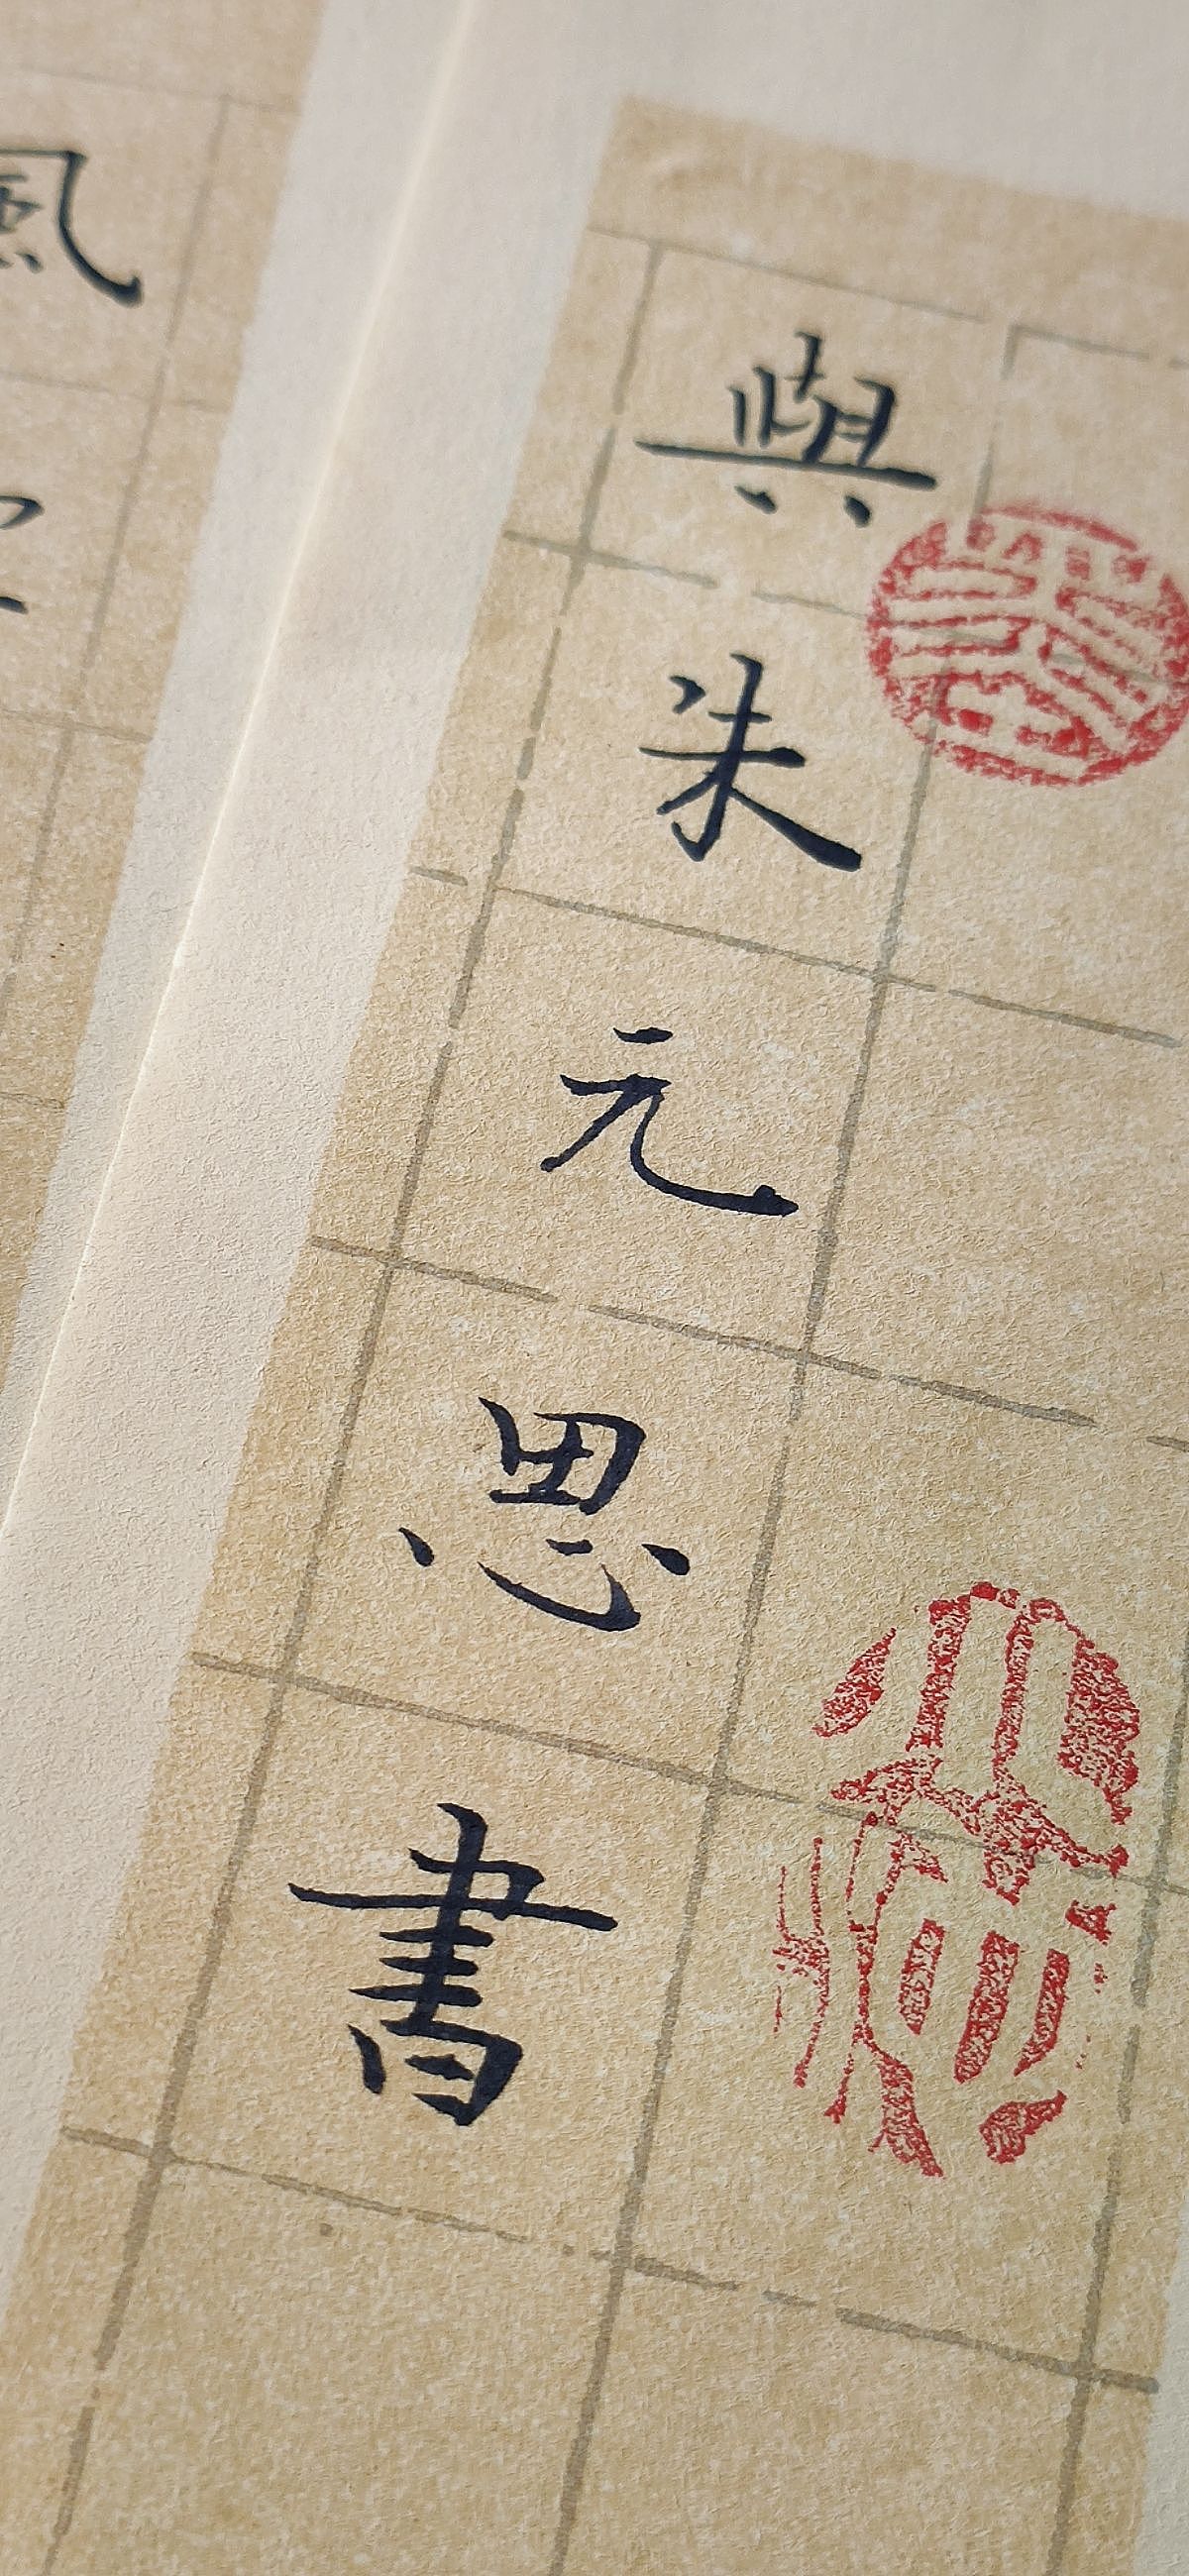 與朱元思書
風